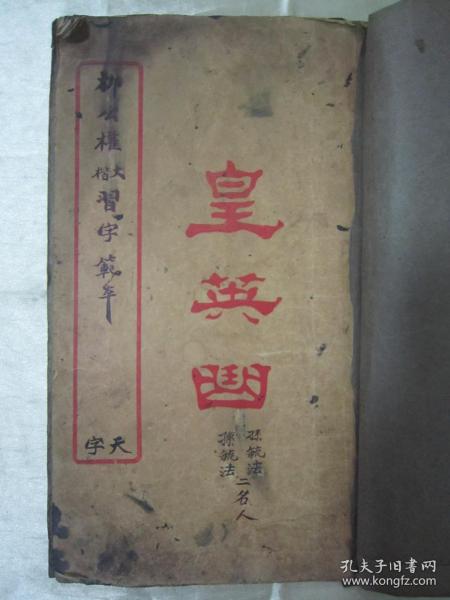 皇英
孫毓法
孫毓法
二名人
柳公權大楷習字範夲
天字
孔夫子旧书网
www.kongfz.com